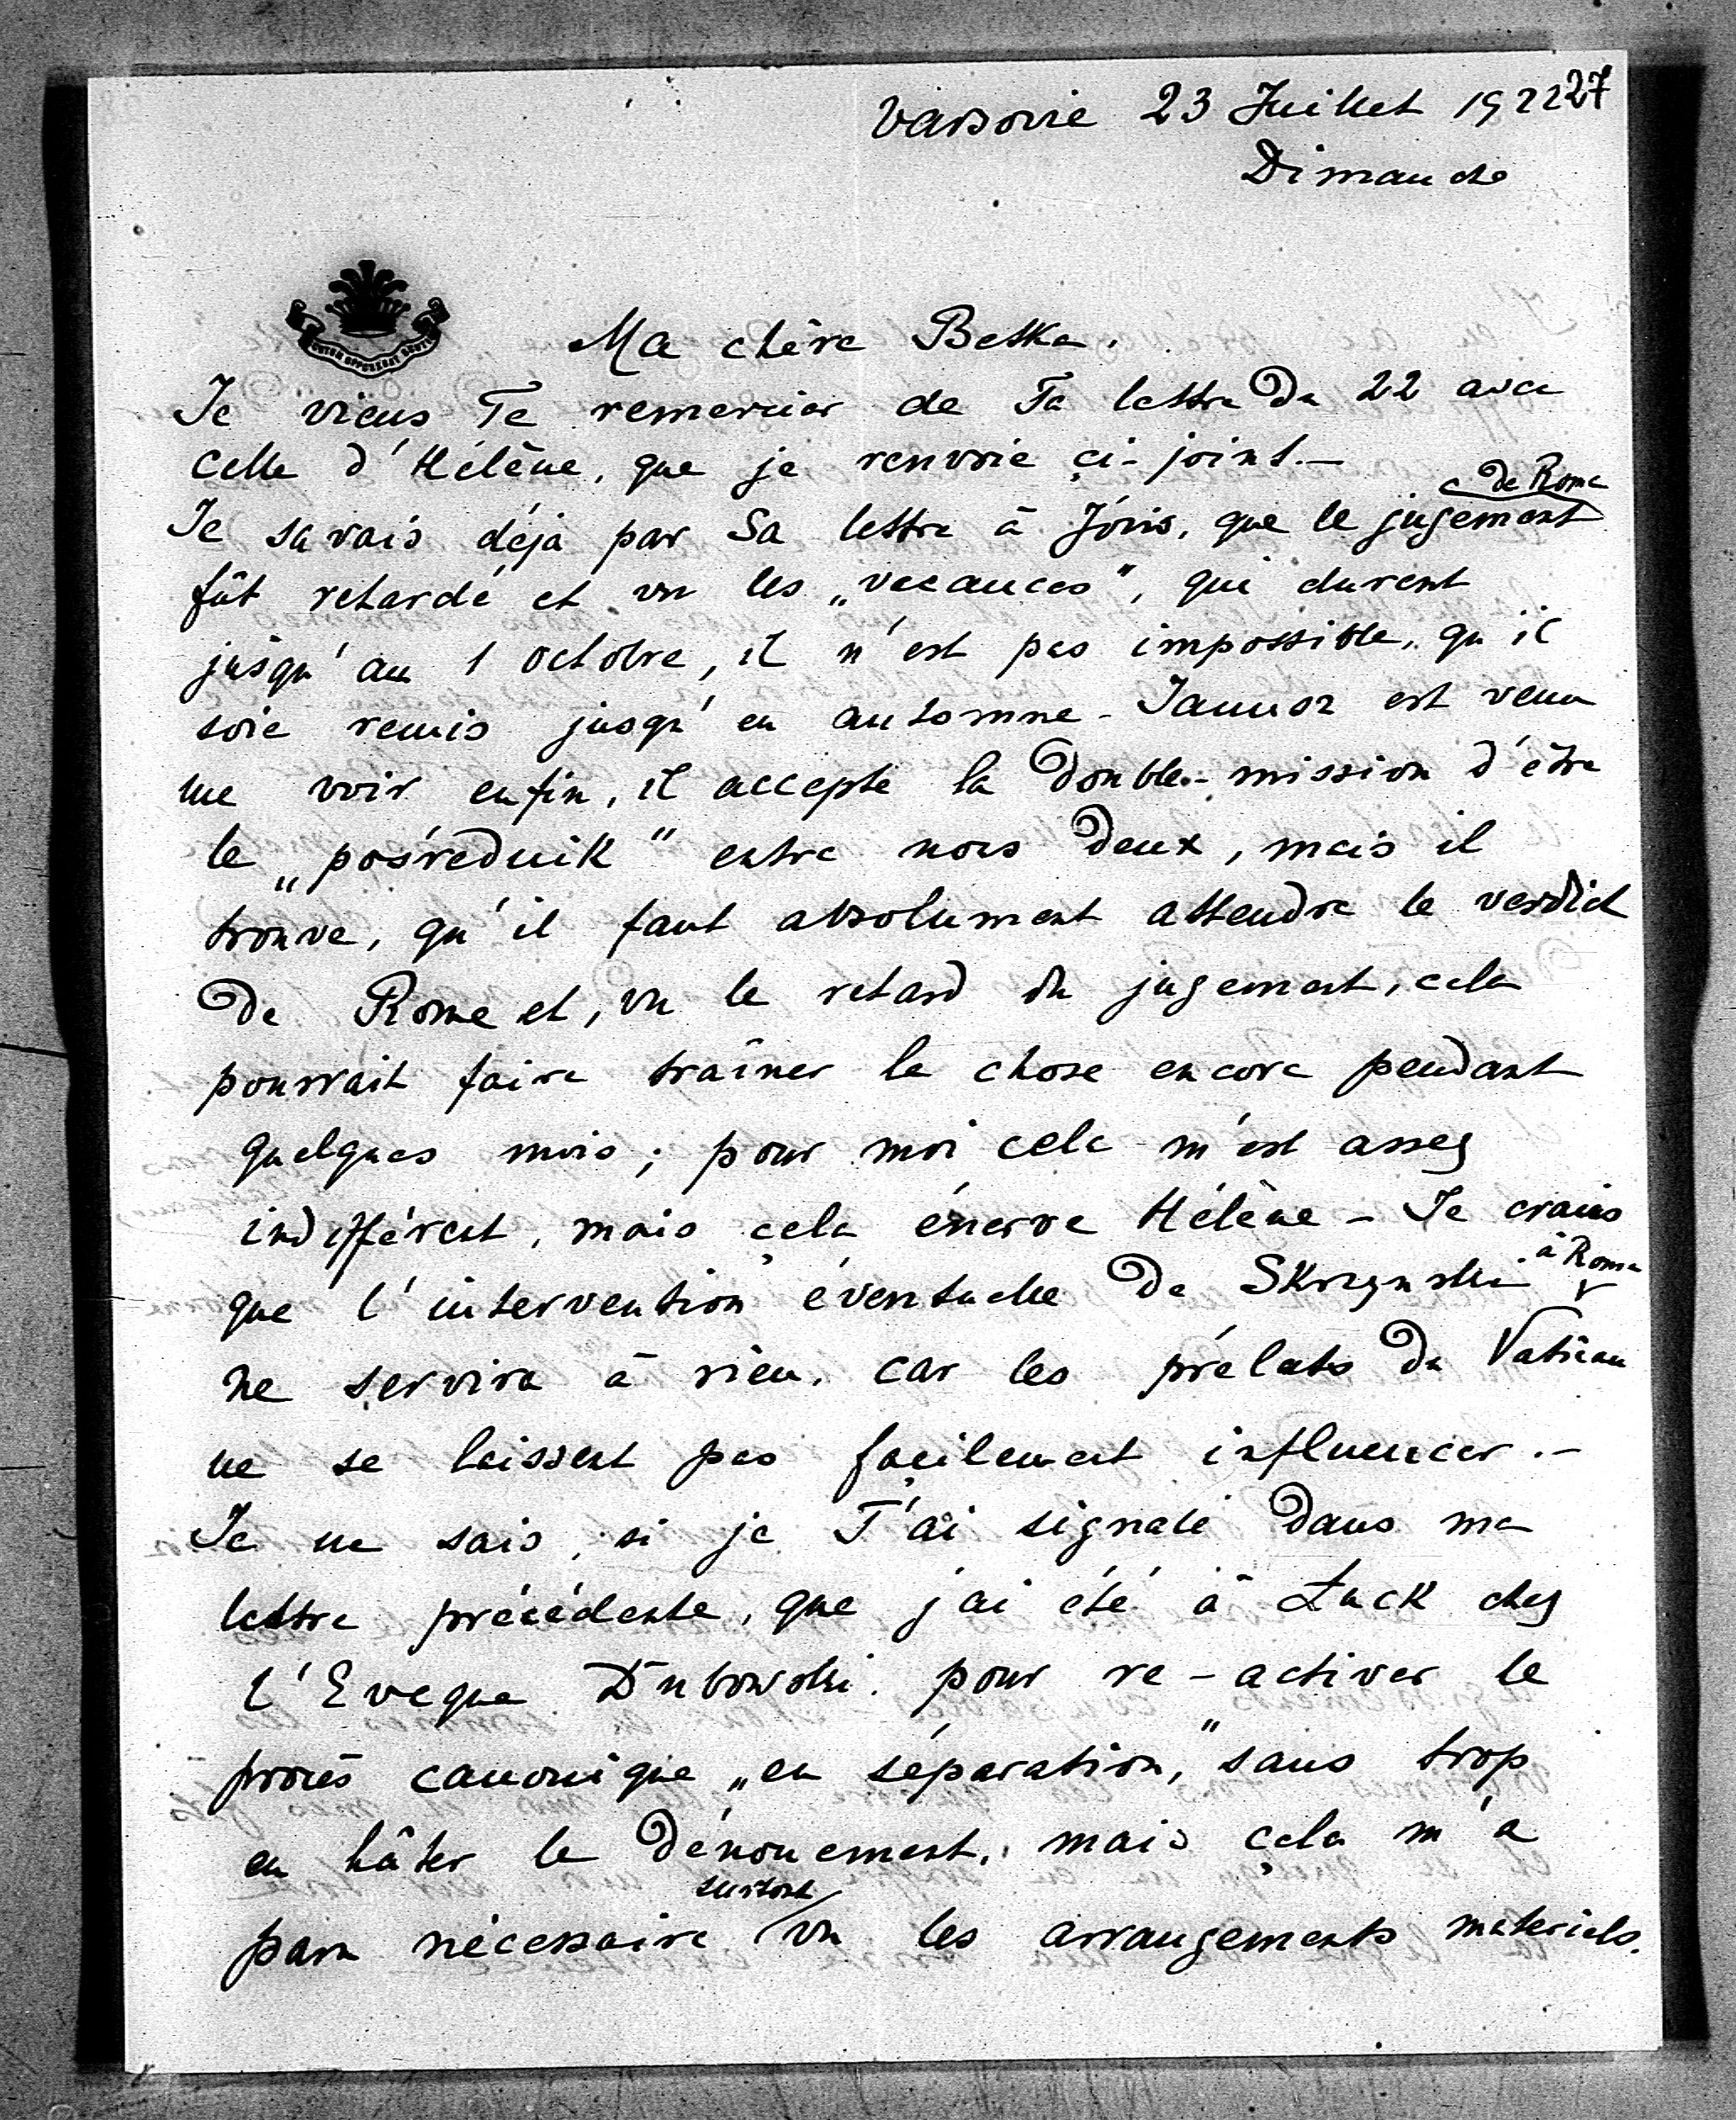 27
Varsovie 23 Juillet 1922
Dimanche
Ma chère Betka.
Je viens Te remercier de Ta lettre du 22 avec
celle d'Hélène, que je renvoie çi-joint.—
de Rome
Je savais déjà par Sa lettre à Józio, que le jugement
fût retardé et vu les „vacances", qui durent
jusqu'au 1 Octobre, il n'est pas impossible, qu'il
soie remis jusqu'en automne - Janusz est venu
me voir enfin, il accepte la double-mission d'être
le „pośrednik" entre nous deux, mais il
trouve, qu'il faut absolument attendre le verdict
de Rome et, vu le retard du jugement, cela
pourrait faire traîner la chose encore pendant
quelques mois; pour moi cela m'est assez
indifférent, mais çela énerve Hélène - Je crains
à Rome
que l'intervention éventuelle de Skrzynski
ne servira à rien, car les prélats du Vatican
ne se laissent pas façilement influencer.-
Je ne sais, si je T'ai signalé dans ma
lettre précédente, que j'ai été à Łuck chez
l'Eveque Dubowski pour re-activer le
procès canonique „en séparation," sans trop
en hâter le dénouement, mais çela m'a
surtout
paru nécessaire vu les arrangements materiels.